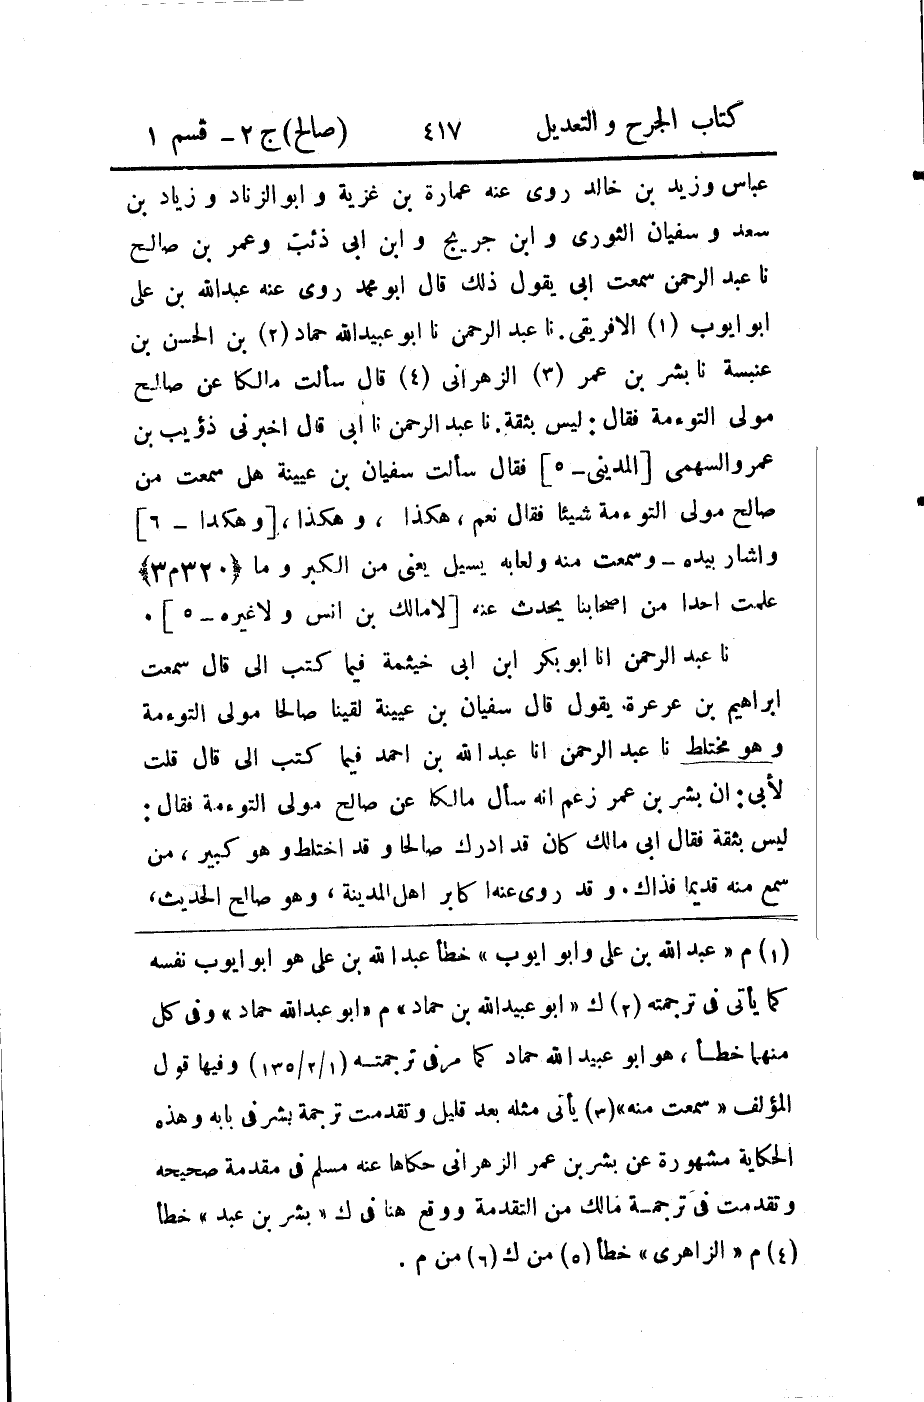 كتاب الجرح و التعديل ٤١٧ (صالح) ج ٢ ـ قسم ١
عباس وزيد بن خالد روى عنه عمارة بن غزية و ابو الزناد و زياد بن
سعد و سفيان الثورى و ابن جريج و ابن ابى ذئب وعمر بن صالح
نا عبد الرحمن سمعت ابى يقول ذلك قال ابو محمد روى عنه عبدالله بن على
ابو ايوب (١) الافريقى . نا عبد الرحمن نا ابو عبيدالله حماد (٢) بن الحسن بن
عنبسة نا بشر بن عمر (٣) الزهرانى (٤) قال سألت مالكا عن صالح
مولى التوءمة فقال : ليس بثقة . نا عبد الرحمن نا ابى قال اخبرنى ذؤيب بن
عمرو السهمى [المدينى ـ ٥] فقال سألت سفيان بن عيينة هل سمعت من
صالح مولى التوءمة شيئا فقال نعم ، هكذا ، و هكذا ، [و هكذا ـ ٦]
واشار بيده ـ وسمعت منه ولعابه يسيل يعنى من الكبر و ما ﴿٣٢٠م٣﴾
علمت احدا من اصحابنا يحدث عنه [لامالك بن انس و لاغيره ـ ٥] .
نا عبد الرحمن انا ابو بكر ابن ابى خيثمة فيما كتب الى قال سمعت
ابراهيم بن عرعرة يقول قال سفيان بن عيينة لقينا صالحا مولى التوءمة
و هو مختلط نا عبد الرحمن انا عبدالله بن احمد فيما كتب الى قال قلت
لأبى : ان بشر بن عمر زعم انه سأل مالكا عن صالح مولى التوءمة فقال :
ليس بثقة فقال ابى مالك كان قد ادرك صالحا و قد اختلط و هو كبير ، من
سمع منه قديما فذاك . و قد روى عنه ا كابر اهل المدينة ، وهو صالح الحديث ،
(١) م « عبدالله بن على وابو ايوب » خطأ عبدالله بن على هو ابو ايوب نفسه
كما يأتى فى ترجمته (٢) ك « ابو عبيدالله بن حماد » م «ابو عبدالله حماد » وفى كل
منهما خطأ ، هو ابو عبيدالله حماد كما مر فى ترجمته (١/٢/١٣٥) وفيها قول
المؤلف « سمعت منه»(٣) يأتى مثله بعد قليل و تقدمت ترجمة بشر فى بابه وهذه
الحكاية مشهورة عن بشر بن عمر الزهرانى حكاها عنه مسلم فى مقدمة صحيحه
و تقدمت فى ترجمة مالك من التقدمة ووقع هنا فى ك « بشر بن عبد » خطأ
(٤) م « الزاهرى » خطأ (٥) من ك (٦) من م .